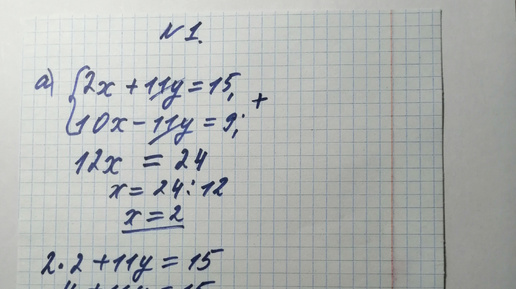 №1.
а) {2x + 11y = 15, +
10x - 11y = 9;
12x = 24
x = 24 : 12
x = 2
2 · 2 + 11y = 15
4 + 11y = 15